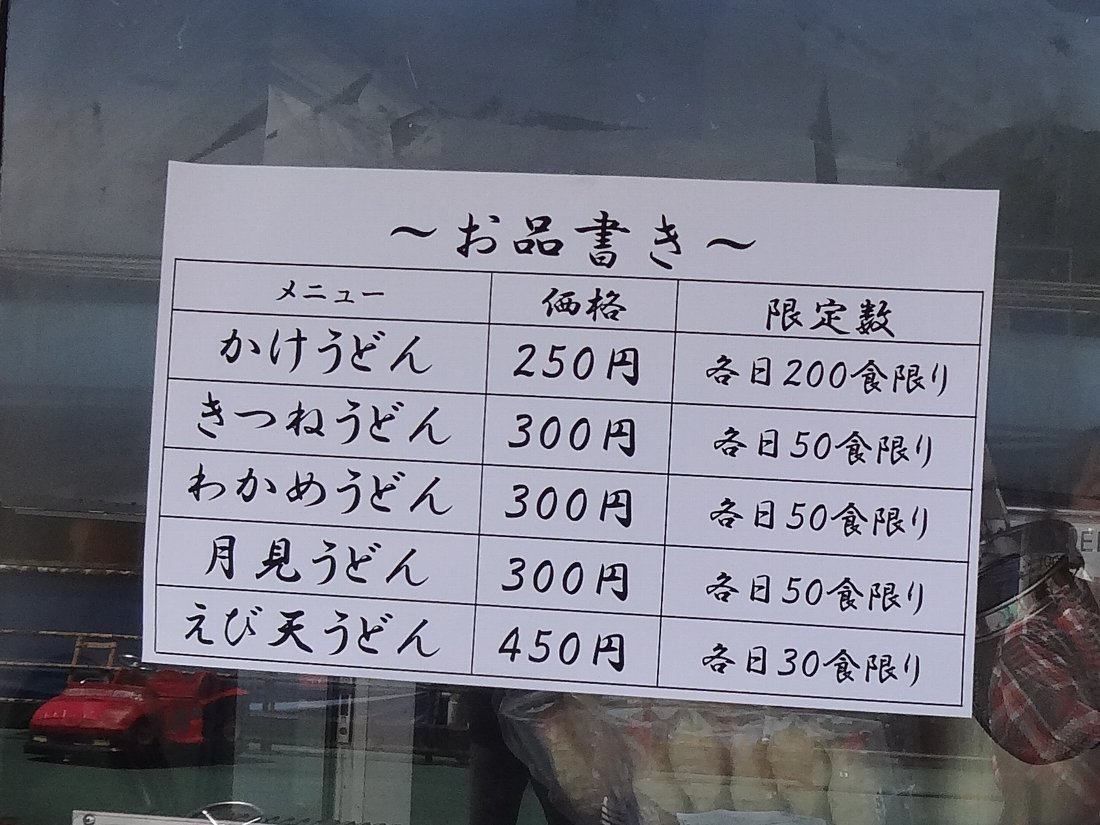 ～お品書き～
メニュー 価格 限定数
かけうどん 250円 各日200食限り
きつねうどん 300円 各日50食限り
わかめうどん 300円 各日50食限り
月見うどん 300円 各日50食限り
えび天うどん 450円 各日30食限り